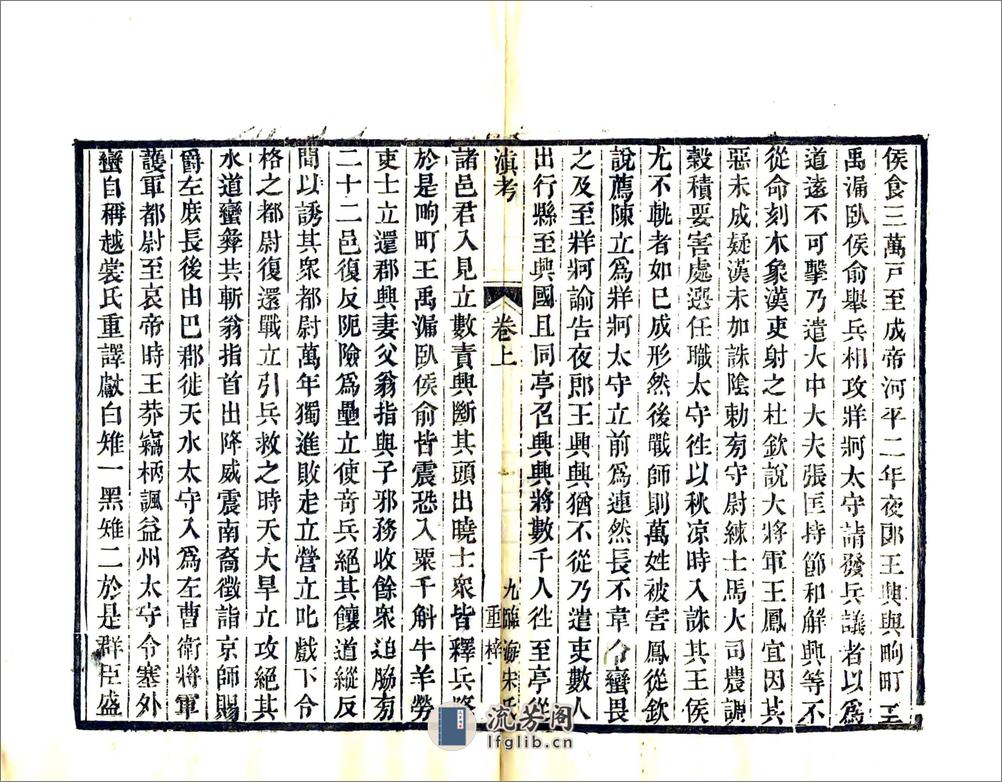 侯食三萬戶至成帝河平二年夜郎王興與畇町王
禹漏臥侯俞舉兵相攻牂牁太守請發兵議者以爲
道遠不可擊乃遣大中大夫張匡持節和解興等不
從命刻木象漢吏射之杜欽說大將軍王鳳宜因其
惡未成疑漢未加誅陰勅旁守尉練士馬大司農調
穀積要害處選任職太守徃以秋凉時入誅其王侯
尤不軌者如已成形然後戰師則萬姓被害鳳從欽
說薦陳立爲牂牁太守立前爲連然長不韋令蠻畏
之及至牂牁諭告夜郎王興興猶不從乃遣吏數人
出行縣至興國且同亭召興興將數千人徃至亭從
滇考
卷上
九臨海宋氏
重梓
諸邑君入見立數責興斷其頭出曉士衆皆釋兵降
於是畇町王禹漏臥侯俞皆震恐入粟千斛牛羊勞
吏士立還郡興妻父翁指與子邪務收餘衆迫脇旁
二十二邑復反阨險爲壘立使竒兵絕其饟道縱反
間以誘其衆都尉萬年獨進敗走立營立叱戲下令
格之都尉復還戰立引兵救之時天大旱立攻絕其
水道蠻彝共斬翁指首出降威震南裔徵詣京師賜
爵左庶長後由巴郡徙天水太守入爲左曹衛將軍
護軍都尉至哀帝時王莽竊柄諷益州太守令塞外
蠻自稱越裳氏重譯獻白雉一黑雉二於是群臣盛
流芳阁
lfglib.cn